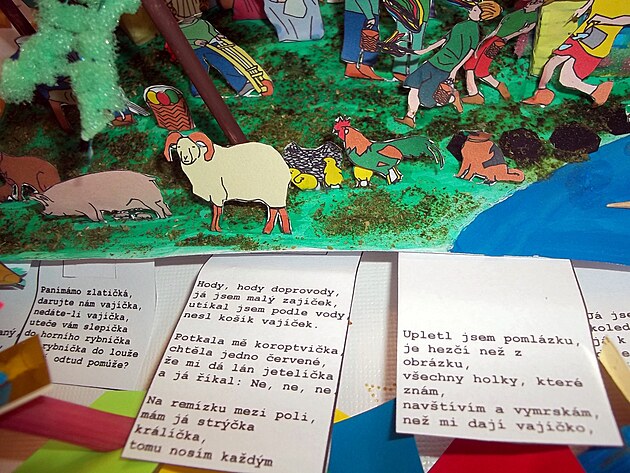 Panímámo zlatičká,
darujte nám vajíčka,
nedáte-li vajíčka,
uteče vám slepička
do horního rybníčka
rybníčka do louže
odtud pomůže?
Hody, hody doprovody,
já jsem malý zajíček,
utíkal jsem podle vody,
nesl košík vajíček.
Potkala mě koroptvička,
chtěla jedno červené,
že mi dá lán jetelíčka
a já říkal: Ne, ne, ne.
Na remízku mezi poli,
mám já strýčka
králíčka,
tomu nosím každým
Upletl jsem pomlázku,
je hezčí než z
obrázku,
všechny holky, které
znám,
navštívím a vymrskám,
než mi dají vajíčko,
Já js
koled
já k